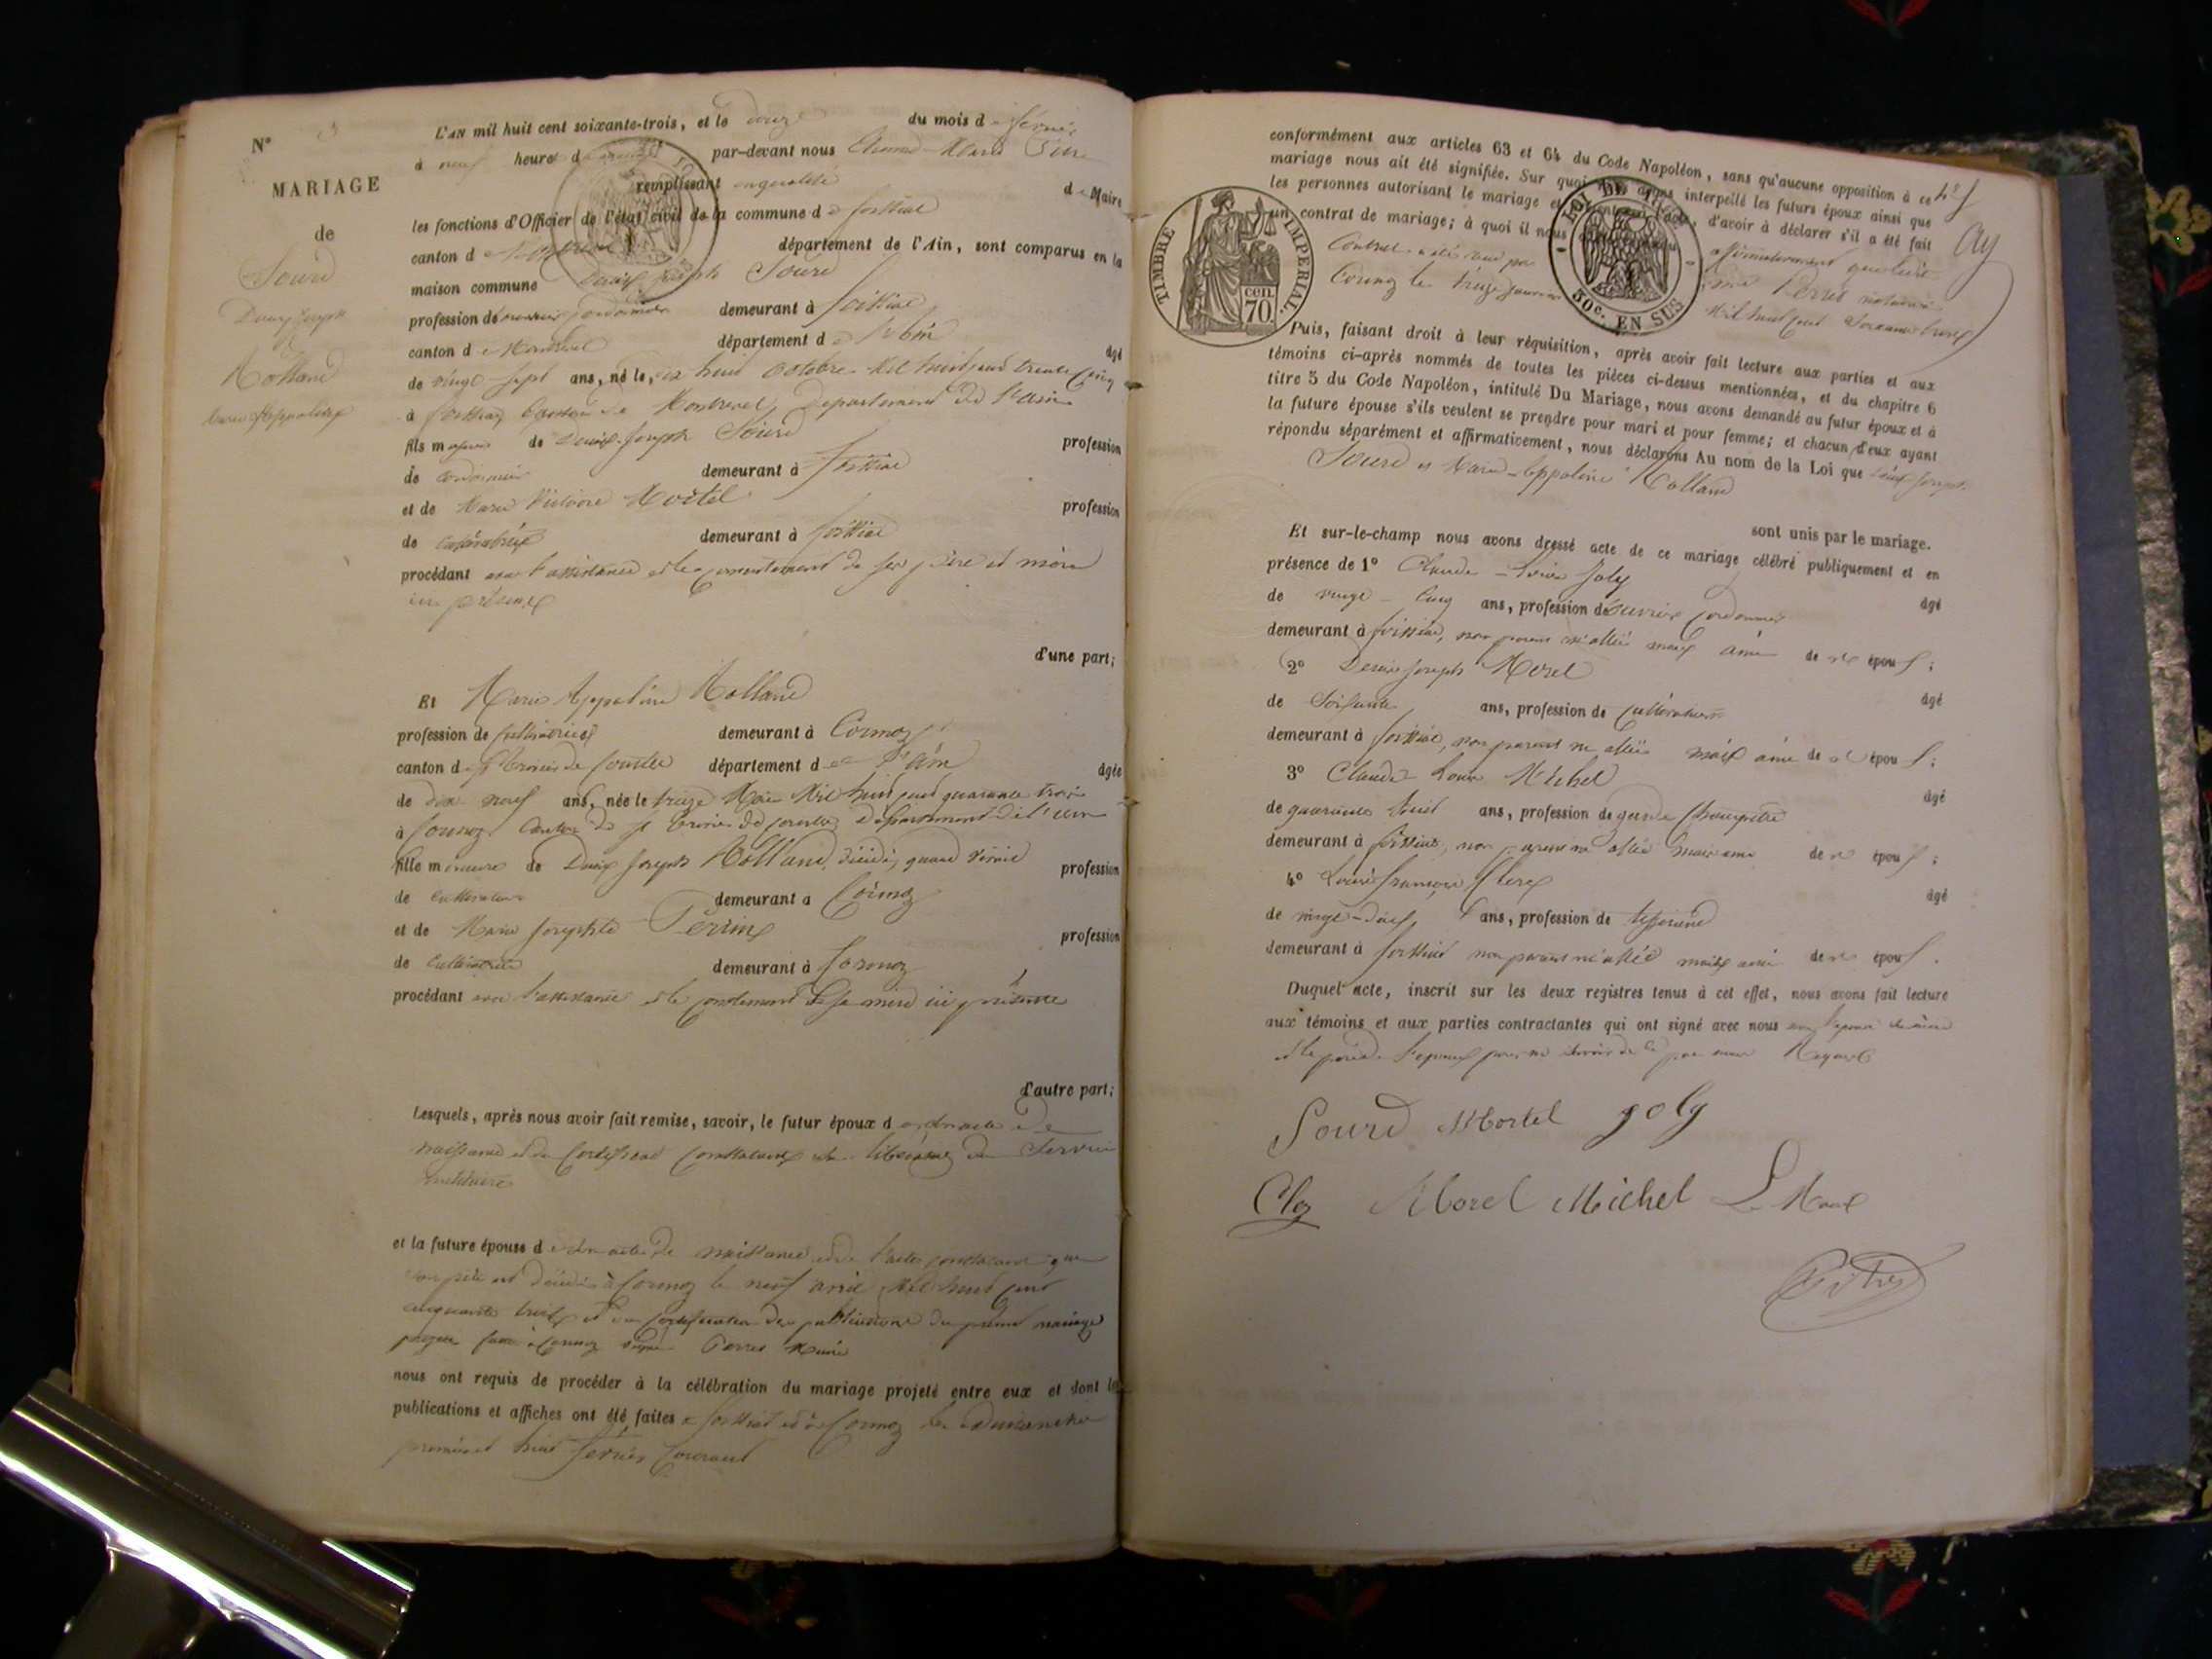 N° 3
MARIAGE
de
Sourd
Denis Joseph
&
Rolland
Marie Appoline
L'AN mil huit cent soixante-trois, et le douze du mois de février
à neuf heures du par-devant nous Marie
remplissant en qualité de Maire
les fonctions d'Officier de l'état civil de la commune de foissiat
canton de Montrevel département de l'Ain, sont comparus en la
maison commune Denis Joseph Sourd
profession de ouvrier cordonnier demeurant à foissiat
canton de Montrevel département de l'ain âgé
de vingt-sept ans, né le dix huit octobre mil huit cent trente cinq
à foissiat canton de Montrevel département de l'ain
fils majeur de Denis Joseph Sourd profession
de cordonnier demeurant à foissiat
et de Marie Victoire Mortel profession
de cultivatrice demeurant à foissiat
procédant avec l'assistance et le consentement de ses père et mère
ici présents
d'une part;
Et Marie Appoline Rolland
profession de cultivatrice demeurant à Cormoz
canton de St Trivier de Courtes département de l'ain âgée
de dix neuf ans, née le treize Mai mil huit cent quarante trois
à Cormoz canton de St Trivier de courtes département de l'ain
fille mineure de Denis Joseph Rolland, décédé, quand vivait profession
de cultivateur demeurant à Cormoz
et de Marie Josephte Perrin profession
de cultivatrice demeurant à Cormoz
procédant avec l'assistance et le consentement de sa mère ici présente
d'autre part;
Lesquels, après nous avoir fait remise, savoir, le futur époux de son acte de
naissance et du certificat constatant sa libération du service
militaire
et la future épouse de son acte de naissance et de l'acte constatant que
son père est décédé à Cormoz le neuf avril mil huit cent
cinquante trois et du certificat des publications du présent mariage
projeté faites à Cormoz signé Perret Maire
nous ont requis de procéder à la célébration du mariage projeté entre eux et dont les
publications et affiches ont été faites à foissiat et à Cormoz les dimanches
premier et huit février courant
conformément aux articles 63 et 64 du Code Napoléon, sans qu'aucune opposition à ce
mariage nous ait été signifiée. Sur quoi nous avons interpellé les futurs époux ainsi que
les personnes autorisant le mariage et présentes à l'acte, d'avoir à déclarer s'il a été fait
un contrat de mariage; à quoi il nous a été répondu affirmativement que ledit
Contrat a été reçu par me Perret notaire
Cormoz le treize janvier mil huit cent soixante trois
TIMBRE IMPERIAL.
cen. 70.
LOI DE
50c. EN SUS
Puis, faisant droit à leur réquisition, après avoir fait lecture aux parties et aux
témoins ci-après nommés de toutes les pièces ci-dessus mentionnées, et du chapitre 6
titre 5 du Code Napoléon, intitulé Du Mariage, nous avons demandé au futur époux et à
la future épouse s'ils veulent se prendre pour mari et pour femme; et chacun d'eux ayant
répondu séparément et affirmativement, nous déclarons Au nom de la Loi que Denis Joseph
Sourd et Marie-Appoline Rolland
sont unis par le mariage.
Et sur-le-champ nous avons dressé acte de ce mariage célébré publiquement et en
présence de 1° Claude-Louis Joly âgé
de vingt-cinq ans, profession de ouvrier cordonnier
demeurant à foissiat, non parent ni allié mais ami des époux;
2° Denis Joseph Morel âgé
de soixante ans, profession de cultivateur
demeurant à foissiat, non parent ni allié mais ami des époux;
3° Claude Louis Michel âgé
de quarante huit ans, profession de garde champêtre
demeurant à foissiat, non parent ni allié mais ami des époux;
4° Louis françois Clerc âgé
de vingt-deux ans, profession de
demeurant à foissiat non parent ni allié mais ami des époux.
Duquel acte, inscrit sur les deux registres tenus à cet effet, nous avons fait lecture
aux témoins et aux parties contractantes qui ont signé avec nous
Sourd Mortel Joly
Morel Michel